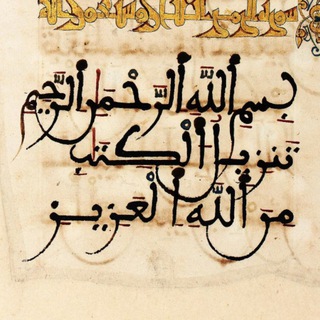 بِسْمِ اللَّهِ الرَّحْمَٰنِ الرَّحِيمِ
تَنزِيلُ الْكِتَٰبِ
مِنَ اللَّهِ الْعَزِيزِ